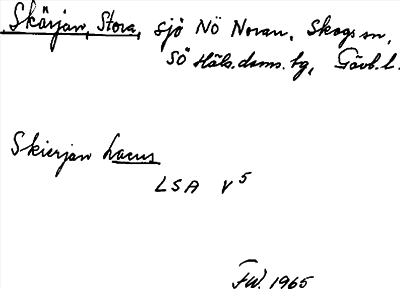 Skärjan, Stora, sjö NÖ Noran, Skogs sn,
SÖ Häls. doms. tg, Gävl. l.
Skierjan Lacus
LSA V 5
FW. 1965